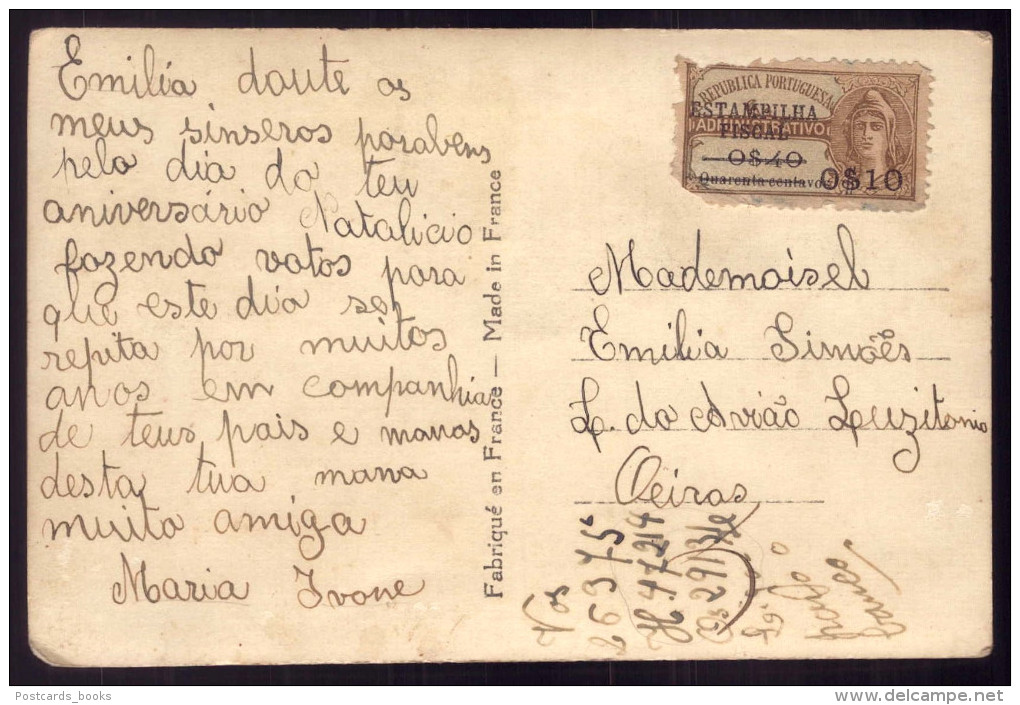 Emilia doute os
meus sinseros parabens
pelo dia do teu
aniversário Natalicio
fazendo votos para
que este dia se
repita por muitos
anos em companhia
de teus pais e manas
desta tua mana
muito amiga
Maria Ivone
Fabriqué en France — Made in France
REPUBLICA PORTUGUESA
ESTAMPILHA
ADMINISTRATIVO
FISCAL
0$40
Quarenta centavos
0$10
Mademoisel
Emilia Simões
L. do Avião Luzitania
Oeiras
Postcards_books
www.delcampe.net